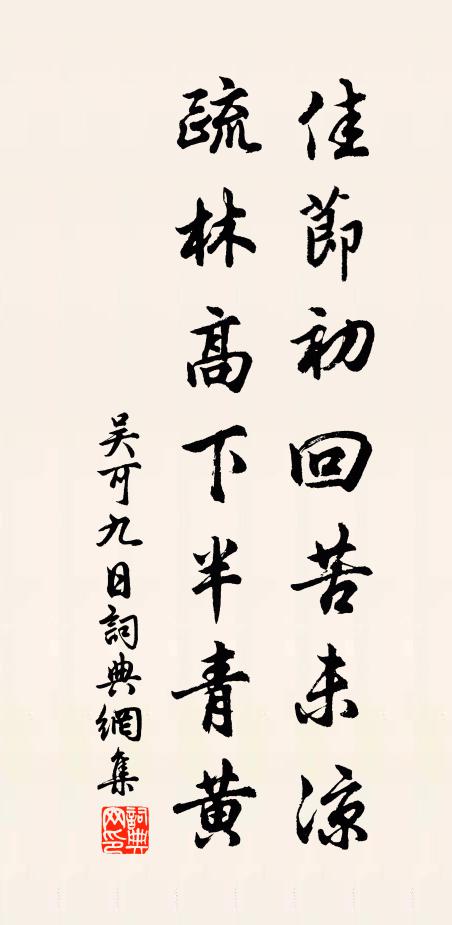 佳節初回苦未涼
疏林高下半青黃
吳可九日詞典網集
詞典網印